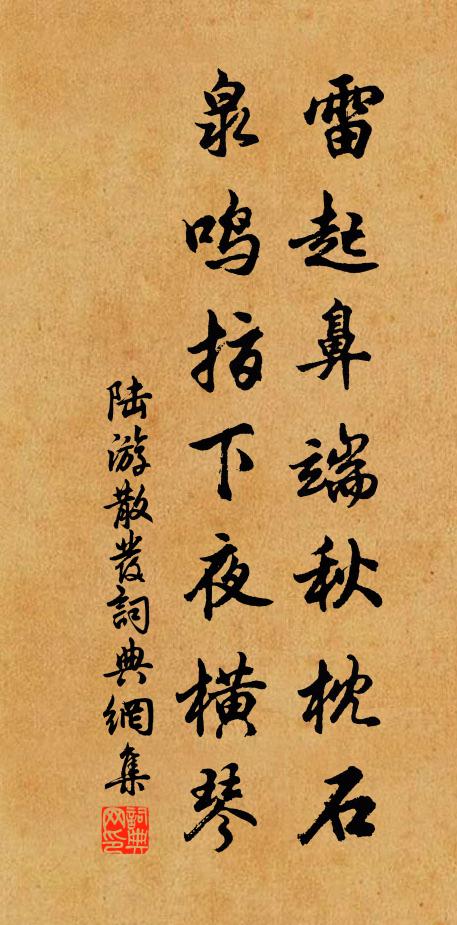 雷起鼻端秋枕石
泉鸣指下夜横琴
陆游散发詞典網集
詞典网印